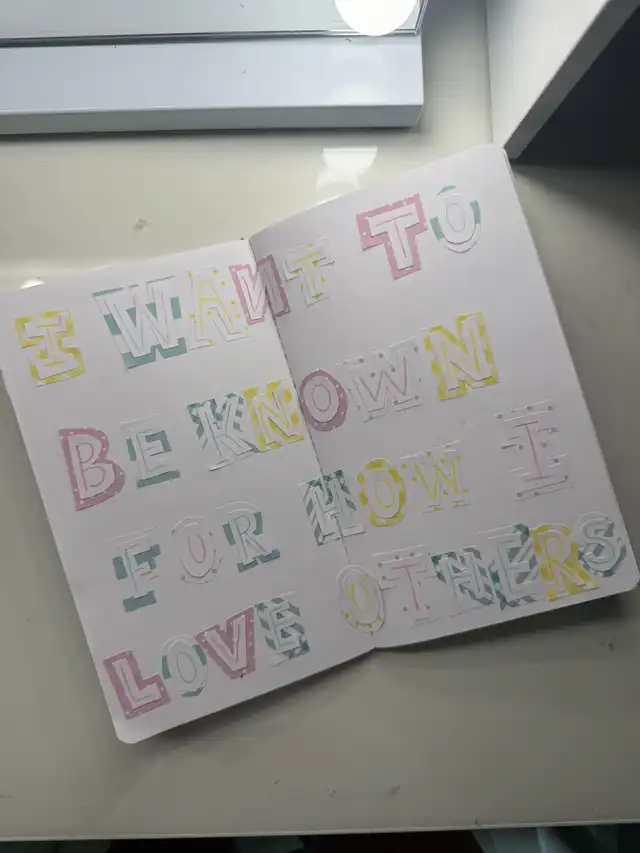 I WANT TO
BE KNOWN
FOR HOW I
LOVE OTHERS